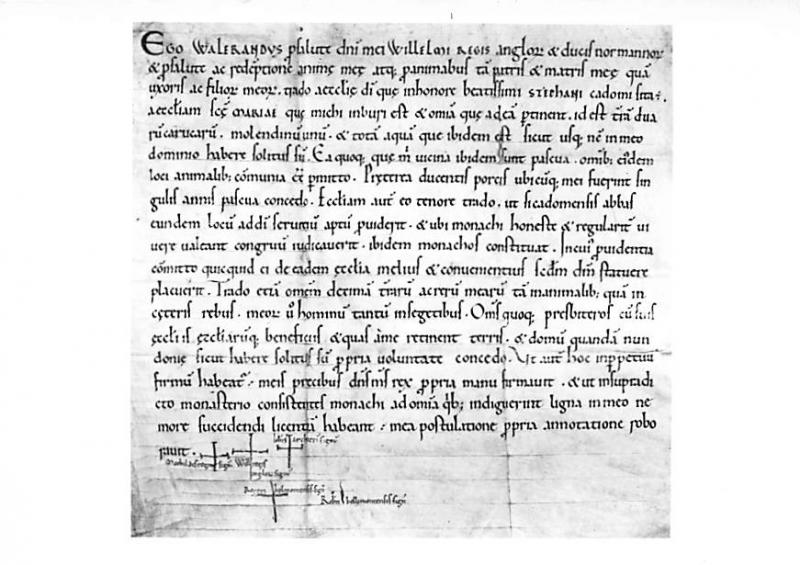 EGO WALERANDVS p salute dñi mei Willelmi REGIS anglor & ducis normannor
& p salute ac redēptione animę meę atq; pro animabus tā patris & matris meę quā
uxoris ac filior meor. trado aecclię dī quę in honore beatissimi STEPHANI cadomi sita ē.
aeccliam scę MARIAE quę michi in buri est & omīa quę ad eā ptinent. id est trā dua
rū carucarū. molendinū unū. & totā aquā que ibidem est sicut usq; nē in meo
dominio habere solitus sū. Ea quoq; quę m̄ uicina ibidem sunt pascua. omīb; eidem
loci animalib; cōmunia eē pmitto. Pręterea ducentis porcis ubicūq; mei fuerint sin
gulis annis pascua concedo. Eccliam aut eo tenore trado. ut si cadomensis abbas
eundem locū addī seruitiū aptū puiderit. & ubi monachi honeste & regularit ui
uere ualeant congruū iudicauerit. ibidem monachos constituat. In cuius puidentia
cōmitto quicquid ei de eadem ęcclia melius & conuenientius scdm dm statuere
placuerit. Trado etiā omem decimā trarū acrerū mearū tā in animalib; quā in
cęteris rebus. meor u hominū tantū in segetibus. Oms quoq; presbiteros cū suis
ęccliis ęccliarūq; beneficiis & quas a me retinent terris. & domū quandā nun
donis sicut habere solitus sū ppria uoluntate concedo. Vt aut hoc in ppetuū
firmū habeat. meis precibus dns ms rex ppria manu firmauit. & ut in supradi
cto monasterio consistentes monachi ad omīa qb; indiguerint ligna in meo ne
more succidendi licentiā habeant. mea postulatione ppria annotatione robo
rauit.